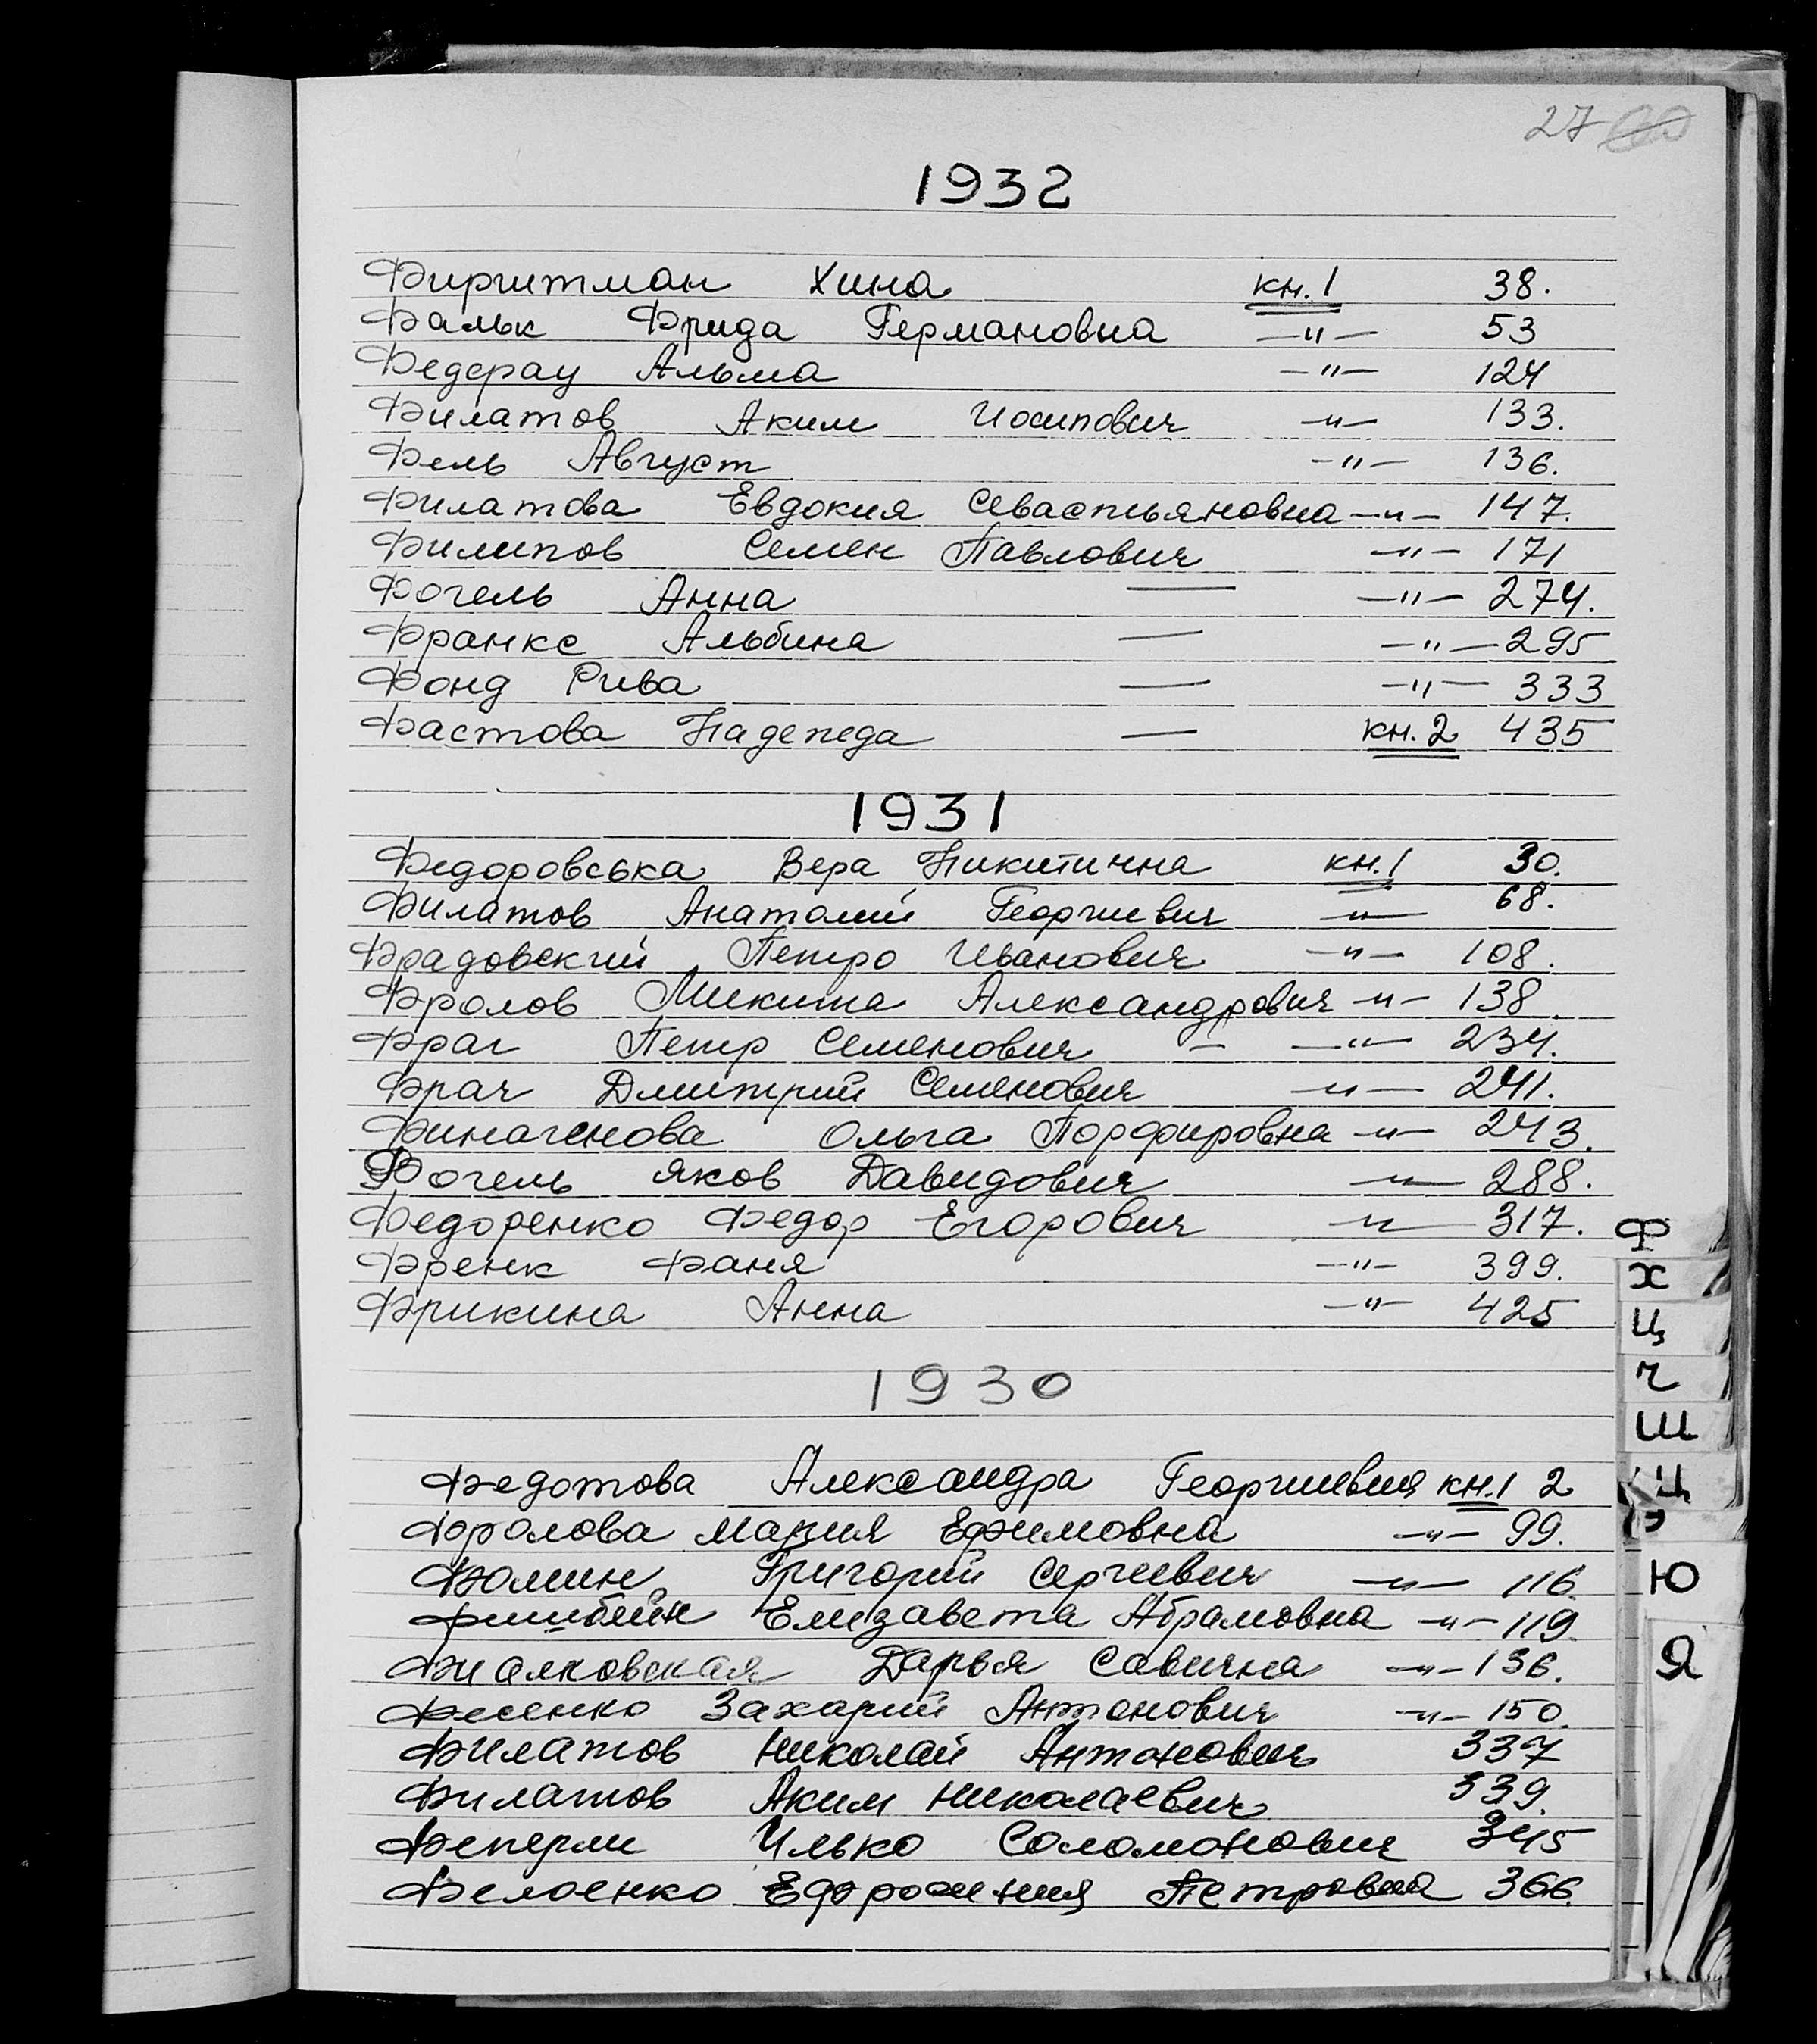 27
1932
Фиришман Хина кн.1 38.
Фальк Фрида Германовна —"— 53
Федерау Альма —"— 124
Филатов Аким Иосипович —"— 133.
Фель Август —"— 136.
Филатова Евдокия Севастьяновна —"— 147.
Филипов Семен Павлович —"— 171
Фогель Анна — —"— 274.
Франкс Альбина — —"— 295
Фонд Рива — —"— 333
Фастова Надежда — кн.2 435
1931
Федоровська Вера Никитична кн.1 30.
Филатов Анатолий Георгиевич —"— 68.
Фрадовский Петро Иванович —"— 108.
Фролов Микита Александрович —"— 138.
Фраг Петр Семенович — —"— 234.
Фрач Дмитрий Семенович —"— 241.
Финагенова Ольга Порфировна —"— 243.
Фогель Яков Давидович —"— 288.
Федоренко Федор Егорович —"— 317.
Френк Фаня —"— 399.
Фрикина Анна —"— 425
1930
Федотова Александра Георгиевна кн.1 2
Фролова Мария Ефимовна —"— 99.
Фомин Григорий Сергеевич —"— 116.
Фишбейн Елизавета Абрамовна —"— 119.
Фиалковская Дарья Савична —"— 136.
Фесенко Захарий Антонович —"— 150.
Филатов Николай Антонович 337
Филатов Аким Николаевич 339.
Феперли Илько Соломонович 345
Фелоенко Едоросиния Петровна 366.
Ф
Х
Ц
Ч
Ш
Щ
Э
Ю
Я